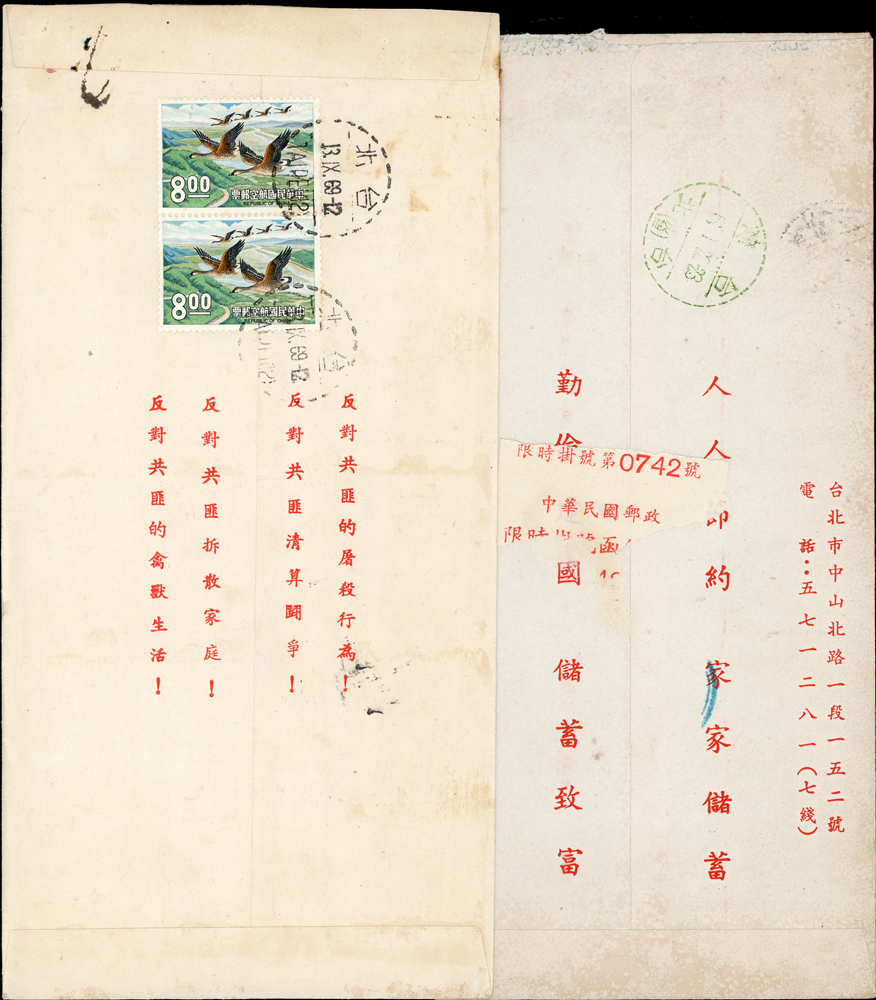 8.00
票郵空航國民華中
REPUBLIC OF CHINA
台北
13.IX.69-12
8.00
票郵空航國民華中
REPUBLIC OF CHINA
台北
IX.69-12
反對共匪的屠殺行為!
反對共匪清算鬪爭!
反對共匪拆散家庭!
反對共匪的禽獸生活!
台北市中山北路一段一五二號
電話:五七一二八一(七綫)
人人節約 家家儲蓄
勤儉國 儲蓄致富
限時掛號第0742號
中華民國郵政
限時掛號函